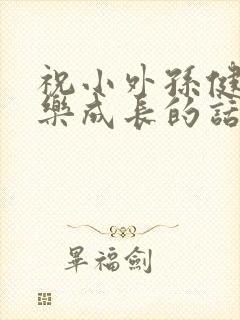 祝小外孫健
樂成長的話
畢福劍